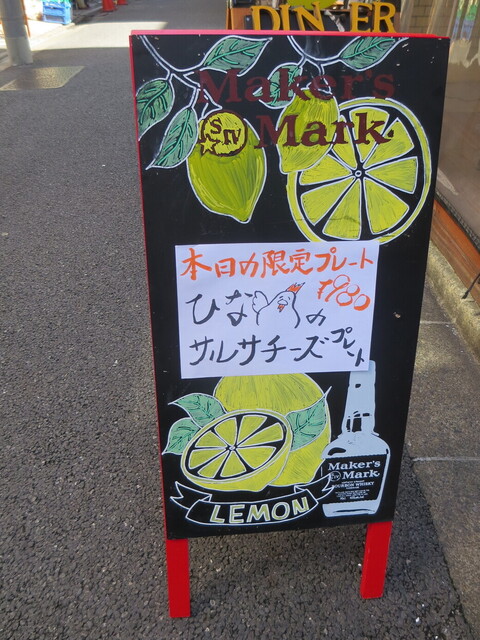 DINNER
Maker's
S IV
Mark
本日の限定プレート
¥980
ひな の
サルサチーズプレート
Maker's
Mark
LEMON